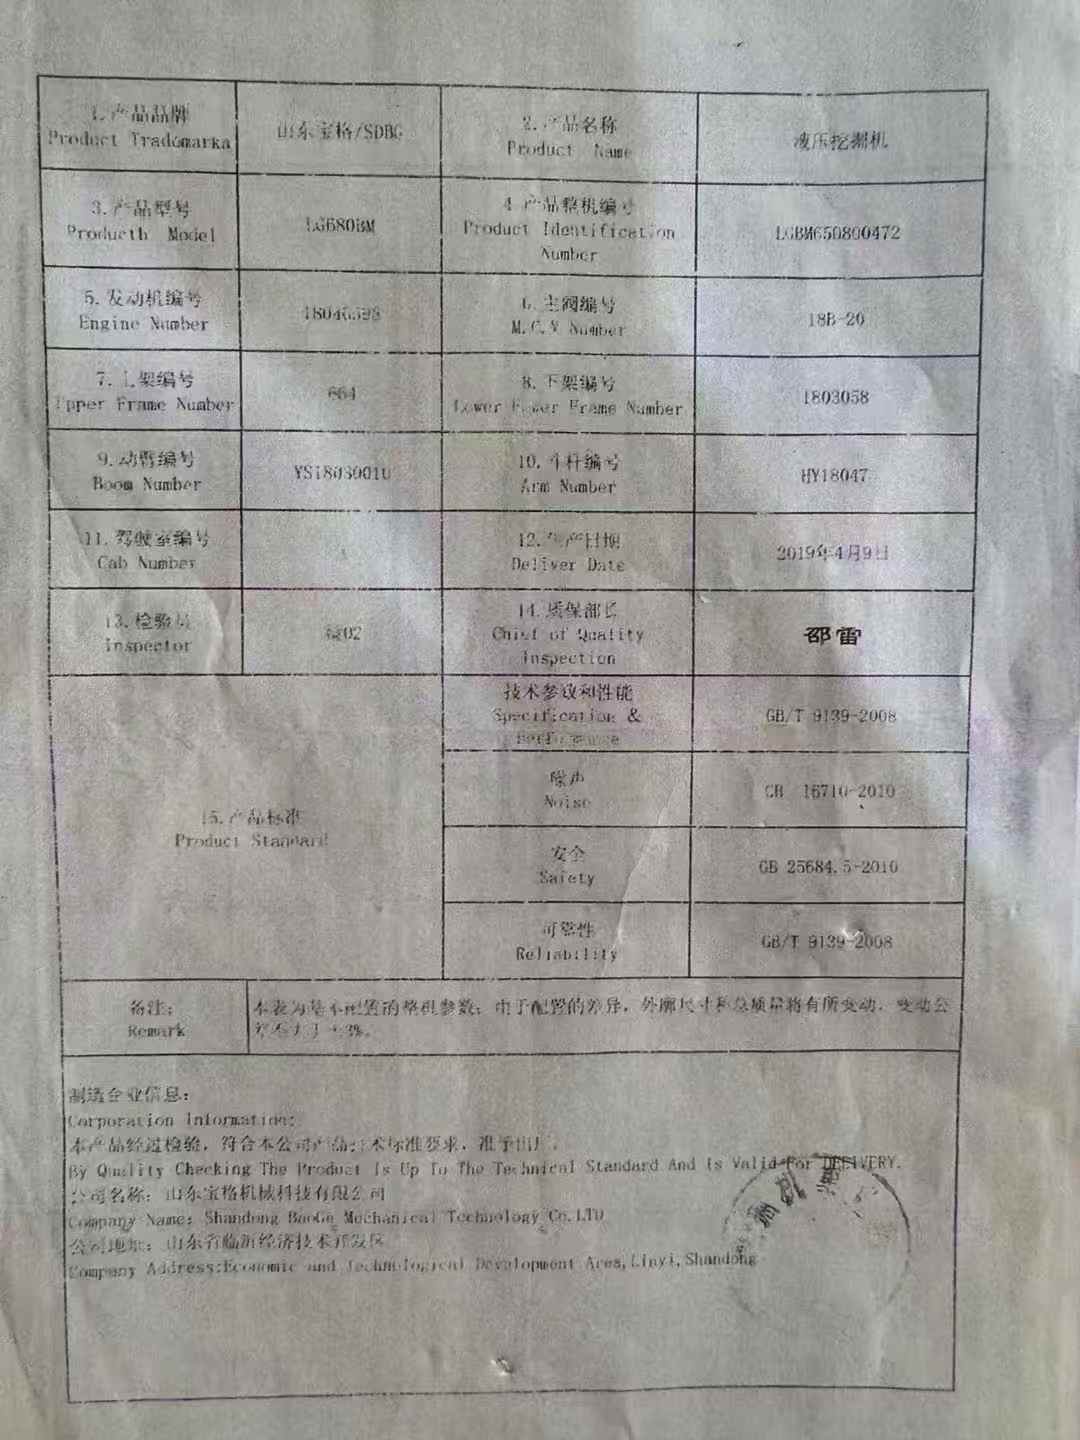 1.产品品牌
Product Trademarka
山东宝格/SDBG
2.产品名称
Product Name
液压挖掘机
3.产品型号
Producth Model
LG680BM
4.产品整机编号
Product Identification
Number
LGBM650800472
5.发动机编号
Engine Number
6.主阀编号
M.C.V Number
18B-20
7.上架编号
Upper Frame Number
664
8.下架编号
Lower Frame Number
1803058
9.动臂编号
Boom Number
YS18030010
10.斗杆编号
Arm Number
HY18047
11.驾驶室编号
Cab Number
12.生产日期
Deliver Date
2019年4月9日
13.检验员
Inspector
02
14.质保部长
Chief of Quality
Inspection
邵雷
15.产品标准
Product Standard
技术参数和性能
Specification &
Performance
GB/T 9139-2008
噪声
Noise
GB 16710-2010
安全
Safety
GB 25684.5-2010
可靠性
Reliability
GB/T 9139-2008
备注:
Remark
本表为基本配置的整机参数;由于配置的差异,外廓尺寸和总质量将有所变动,变动公
制造企业信息:
Corporation Information:
本产品经过检验,符合本公司产品技术标准要求,准予出厂。
By Quality Checking The Product Is Up To The Technical Standard And Is Valid For DELIVERY.
公司名称:山东宝格机械科技有限公司
Company Name: Shandong BaoGe Mechanical Technology Co.LTD
公司地址:山东省临沂经济技术开发区
Company Address:Economic and Technological Development Area,Linyi,Shandong